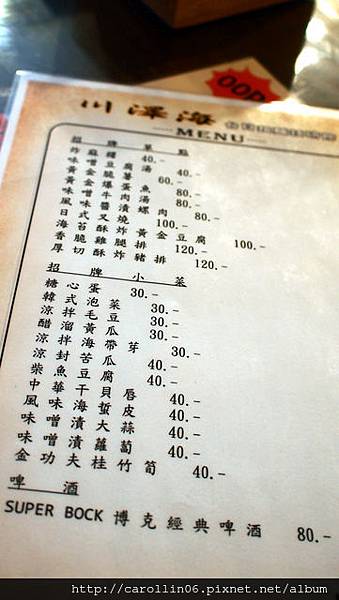 川澤海
MENU
招牌單點
炸麻糬 40.-
味噌豆腐湯 40.-
黃金脆薯 60.-
黃金爆蛋魚 80.-
風味醬漬螺肉 80.-
日式叉燒 100.-
海苔酥炸黃金豆腐 100.-
香脆雞腿排 120.-
厚切炸豬排 120.-
招牌小菜
糖心蛋 30.-
韓式泡菜 30.-
涼拌毛豆 30.-
醋溜黃瓜 30.-
涼拌海帶芽 30.-
涼封苦瓜 40.-
柴魚豆腐 40.-
中華干貝唇 40.-
風味海蜇皮 40.-
味噌漬大蒜 40.-
味噌漬蘿蔔 40.-
金功夫桂竹筍 40.-
啤酒
SUPER BOCK 博克經典啤酒 80.-
http://carollin06.pixnet.net/album